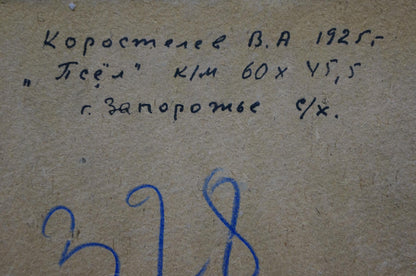 Коростелев В.А 1925г.
"Псёл" к/м 60х45,5
г. Запорожье с/х.
328